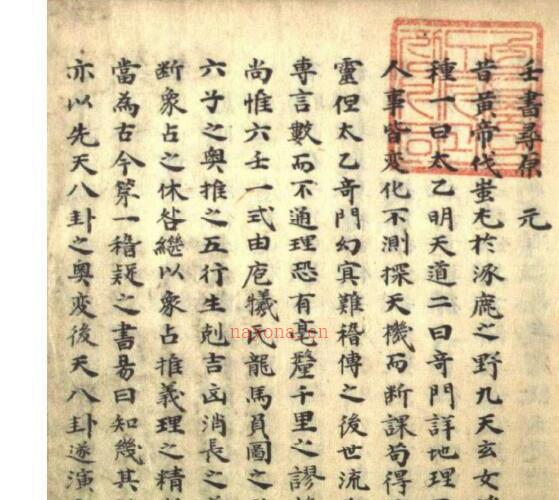 壬書尋原 元
昔黃帝伐蚩尤於涿鹿之野九天玄女
種一曰太乙明天道二曰奇門詳地理
人事皆変化不測探天機而断課苟得
靈但太乙奇門幻冥難稽傳之後世流
專言數而不通理恐有毫釐千里之謬
尚惟六壬一式由庖犧氏龍馬員圖之
六子之奥推之五行生剋吉凶消長之
断象占之休咎繼以象占推義理之精
當為古今第一稽疑之書易曰知幾其
亦以先天八卦之奥変後天八卦遂演
nayona.cn